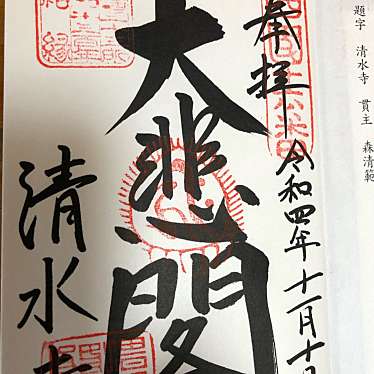 題字 清水寺 貫主 森清範
奉拝 令和四年十一月十日
大悲閣
清水寺
結縁